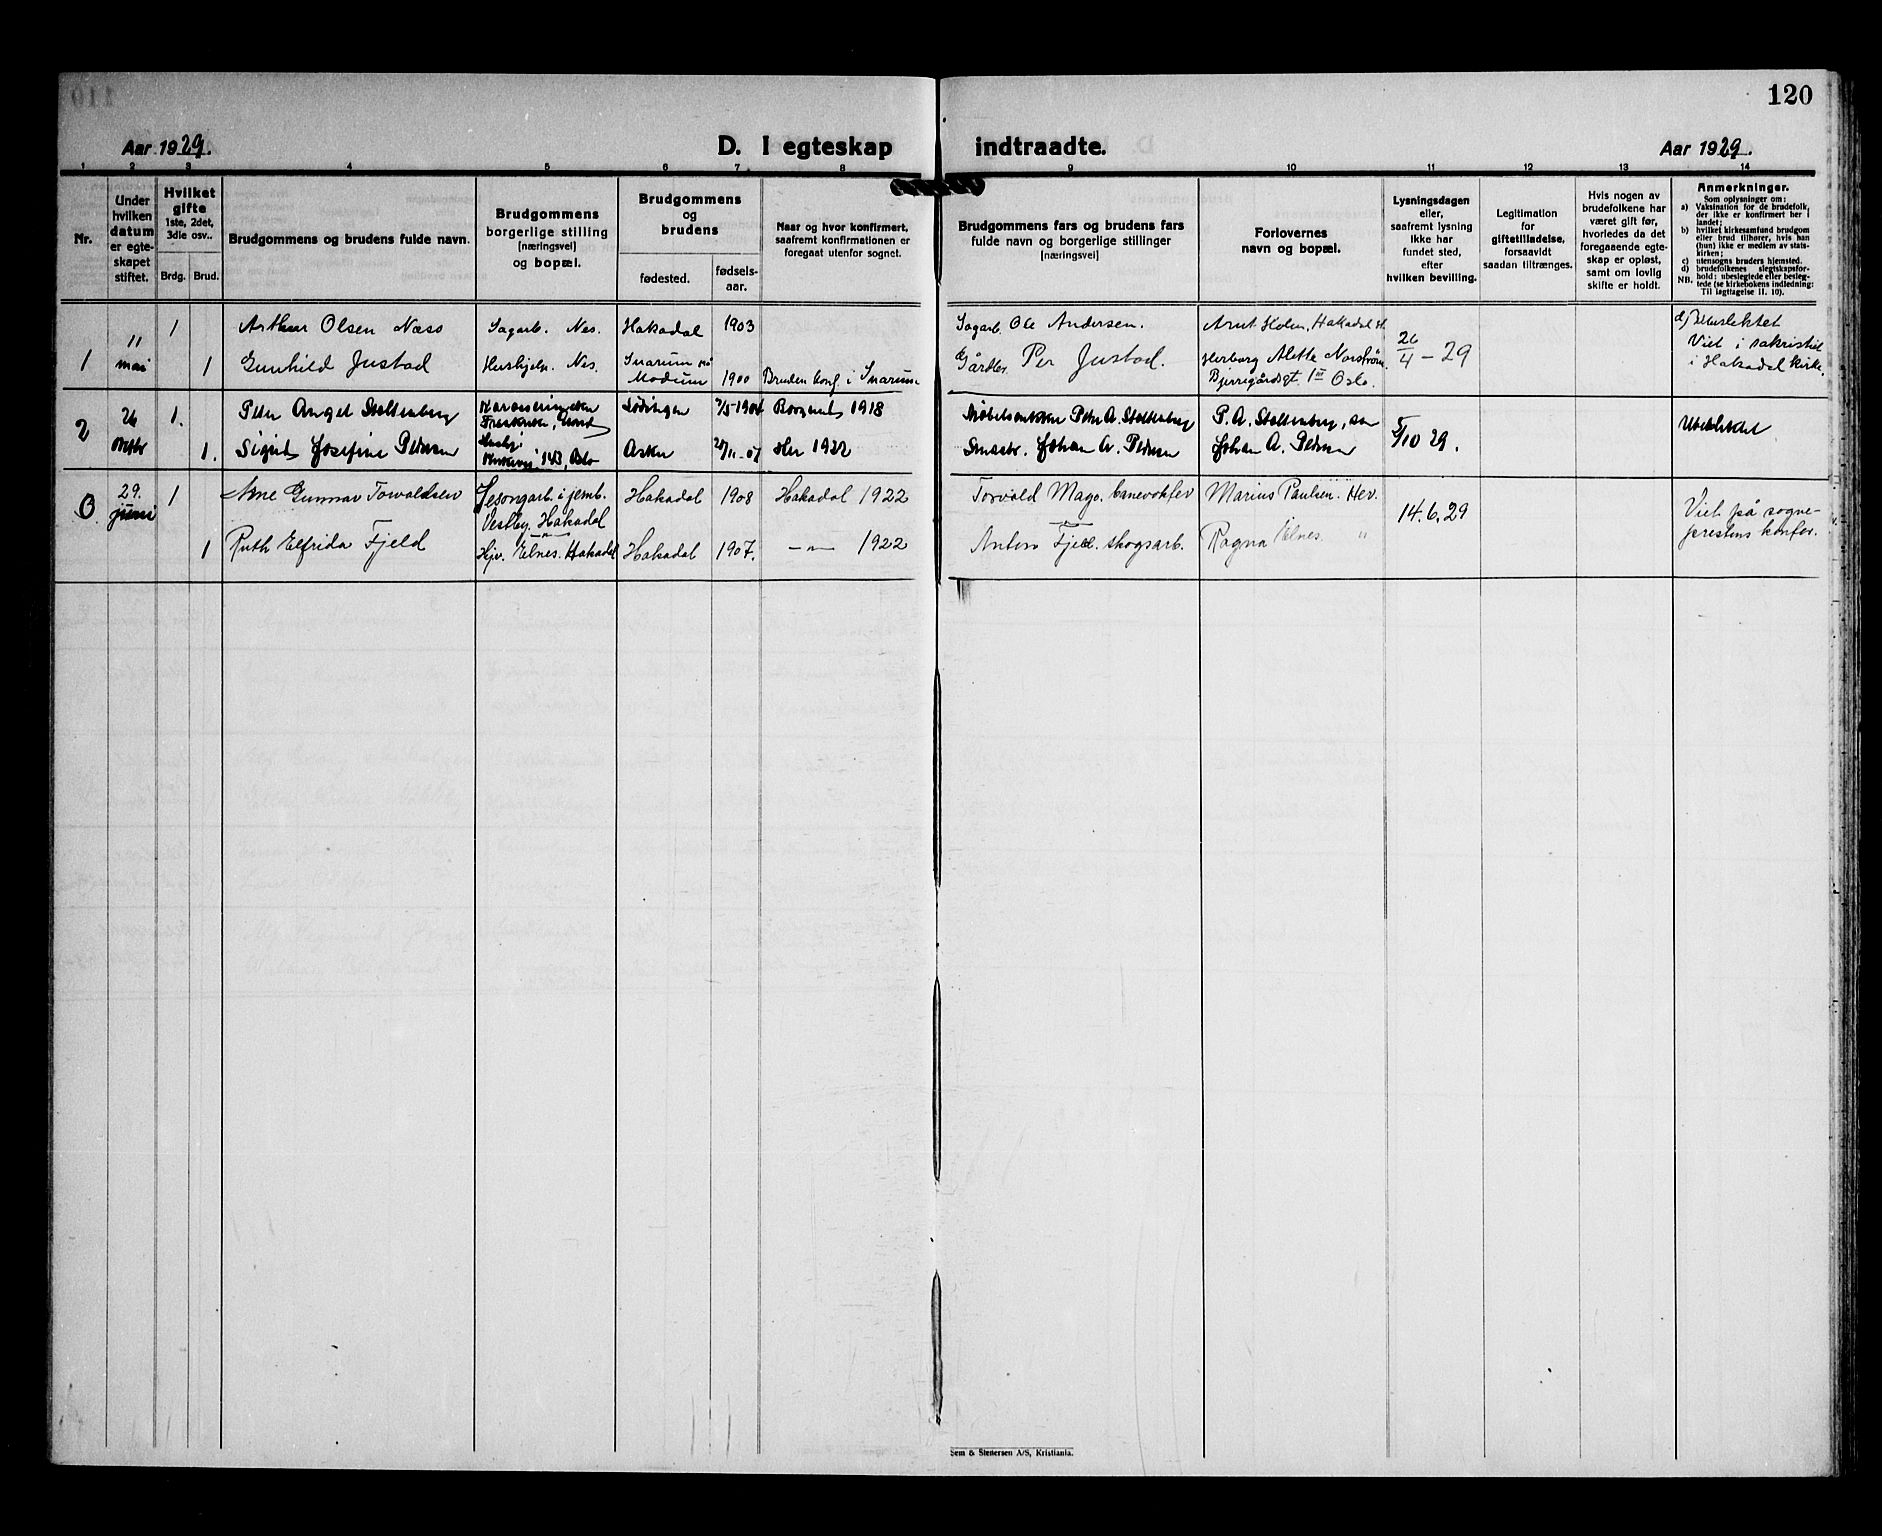 120
Aar 1929.
D. I egteskap indtraadte.
Aar 1929.
1 2 3 4 5 6 7 8 9 10 11 12 13 14
Nr.
Under
hvilken
datum
er egte-
skapet
stiftet.
Hvilket
gifte
1ste, 2det,
3die osv..
Brdg. Brud.
Brudgommens og brudens fulde navn.
Brudgommens
borgerlige stilling
(næringsvei)
og bopæl.
Brudgommens
og
brudens
fødested.
fødsels-
aar.
Naar og hvor konfirmert,
saafremt konfirmationen er
foregaat utenfor sognet.
Brudgommens fars og brudens fars
fulde navn og borgerlige stillinger
(næringsvei)
Forlovernes
navn og bopæl.
Lysningsdagen
eller,
saafremt lysning
ikke har
fundet sted,
efter
hvilken bevilling.
Legitimation
for
giftetilladelse,
forsaavidt
saadan tiltrænges.
Hvis nogen av
brudefolkene har
været gift før,
hvorledes da det
foregaaende egte-
skap er opløst,
samt om lovlig
skifte er holdt.
Anmerkninger.
Som oplysninger om:
a) Vaksination for de brudefolk,
der ikke er konfirmert her i
landet;
b) hvilket kirkesamfund brudgom
eller brud tilhører, hvis han
(hun) ikke er medlem av stats-
kirken;
c) utensogns bruders hjemsted.
d) brudefolkenes slegtskapsfor-
hold: ubeslegtede eller besleg-
NB. tede (se kirkebokens indledning:
Til Iagttagelse II. 10).
1
11
mai
1
Arthur Olsen Næss
Sagarb. Nes.
Hakadal
1903
Sagarb. Ole Andersen.
Arnt Holm, Hakadal
26/4 – 29
d) Ubeslektet
Viet i sakristiet
i Hakadal kirke.
1
Gunhild Justad
Hushjelp. Nes.
Snarum
Modum
1900
Bruden konf. i Snarum
Gårdbr. Per Justad.
Herborg Alette Norstrøm
Bjerregårdsgt. 1 III Oslo.
2
26
1.
Peter Angel Stoltenberg
Lødingen
7/5-1904
Borgund 1918
Peter A. Stoltenberg
P. A. Stoltenberg,
5/10 29.
Ubeslektet
1.
Sigrid Josefine Pedersen
143, Oslo
Asker
Her 1922
Johan A. Pedersen
Johan A. Pedersen
3
29.
juni
1
Arne Gunnar Torvaldsen
Sesongarb. i jernb.
Vestby, Hakadal
Hakadal
1908
Hakadal 1922
Torvald Mago. banevokter
Marius Paulsen. Her.
14.6.29
Viet på sogne-
prestens kontor.
1
Ruth Elfrida Fjeld
Hjv. Elnes. Hakadal
Hakadal
1907.
—„— 1922
Anton Fjeld. skogsarb.
Ragna Elnes. "
Sem & Stenersen A/S, Kristiania.